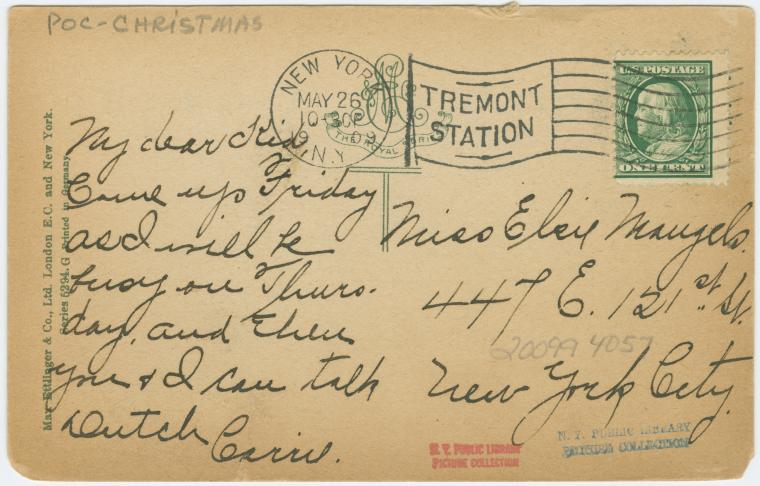 POC-CHRISTMAS
NEW YORK
MAY 26
10-30P
1909
N.Y.
TREMONT
STATION
THE ROYAL SERIES
U.S. POSTAGE
ONE CENT
My dear Kid
Come up Friday
as I will be
busy on Thurs-
day, and then
you & I can talk
Dutch
Carrie.
Miss Elsie Mangels.
447 E. 121st St.
New York City.
20099 4057
Max Ettlinger & Co., Ltd. London E.C. and New York.
Series 5294. G Printed in Germany
N. Y. PUBLIC LIBRARY
PICTURE COLLECTION
N. Y. PUBLIC LIBRARY
PICTURE COLLECTION